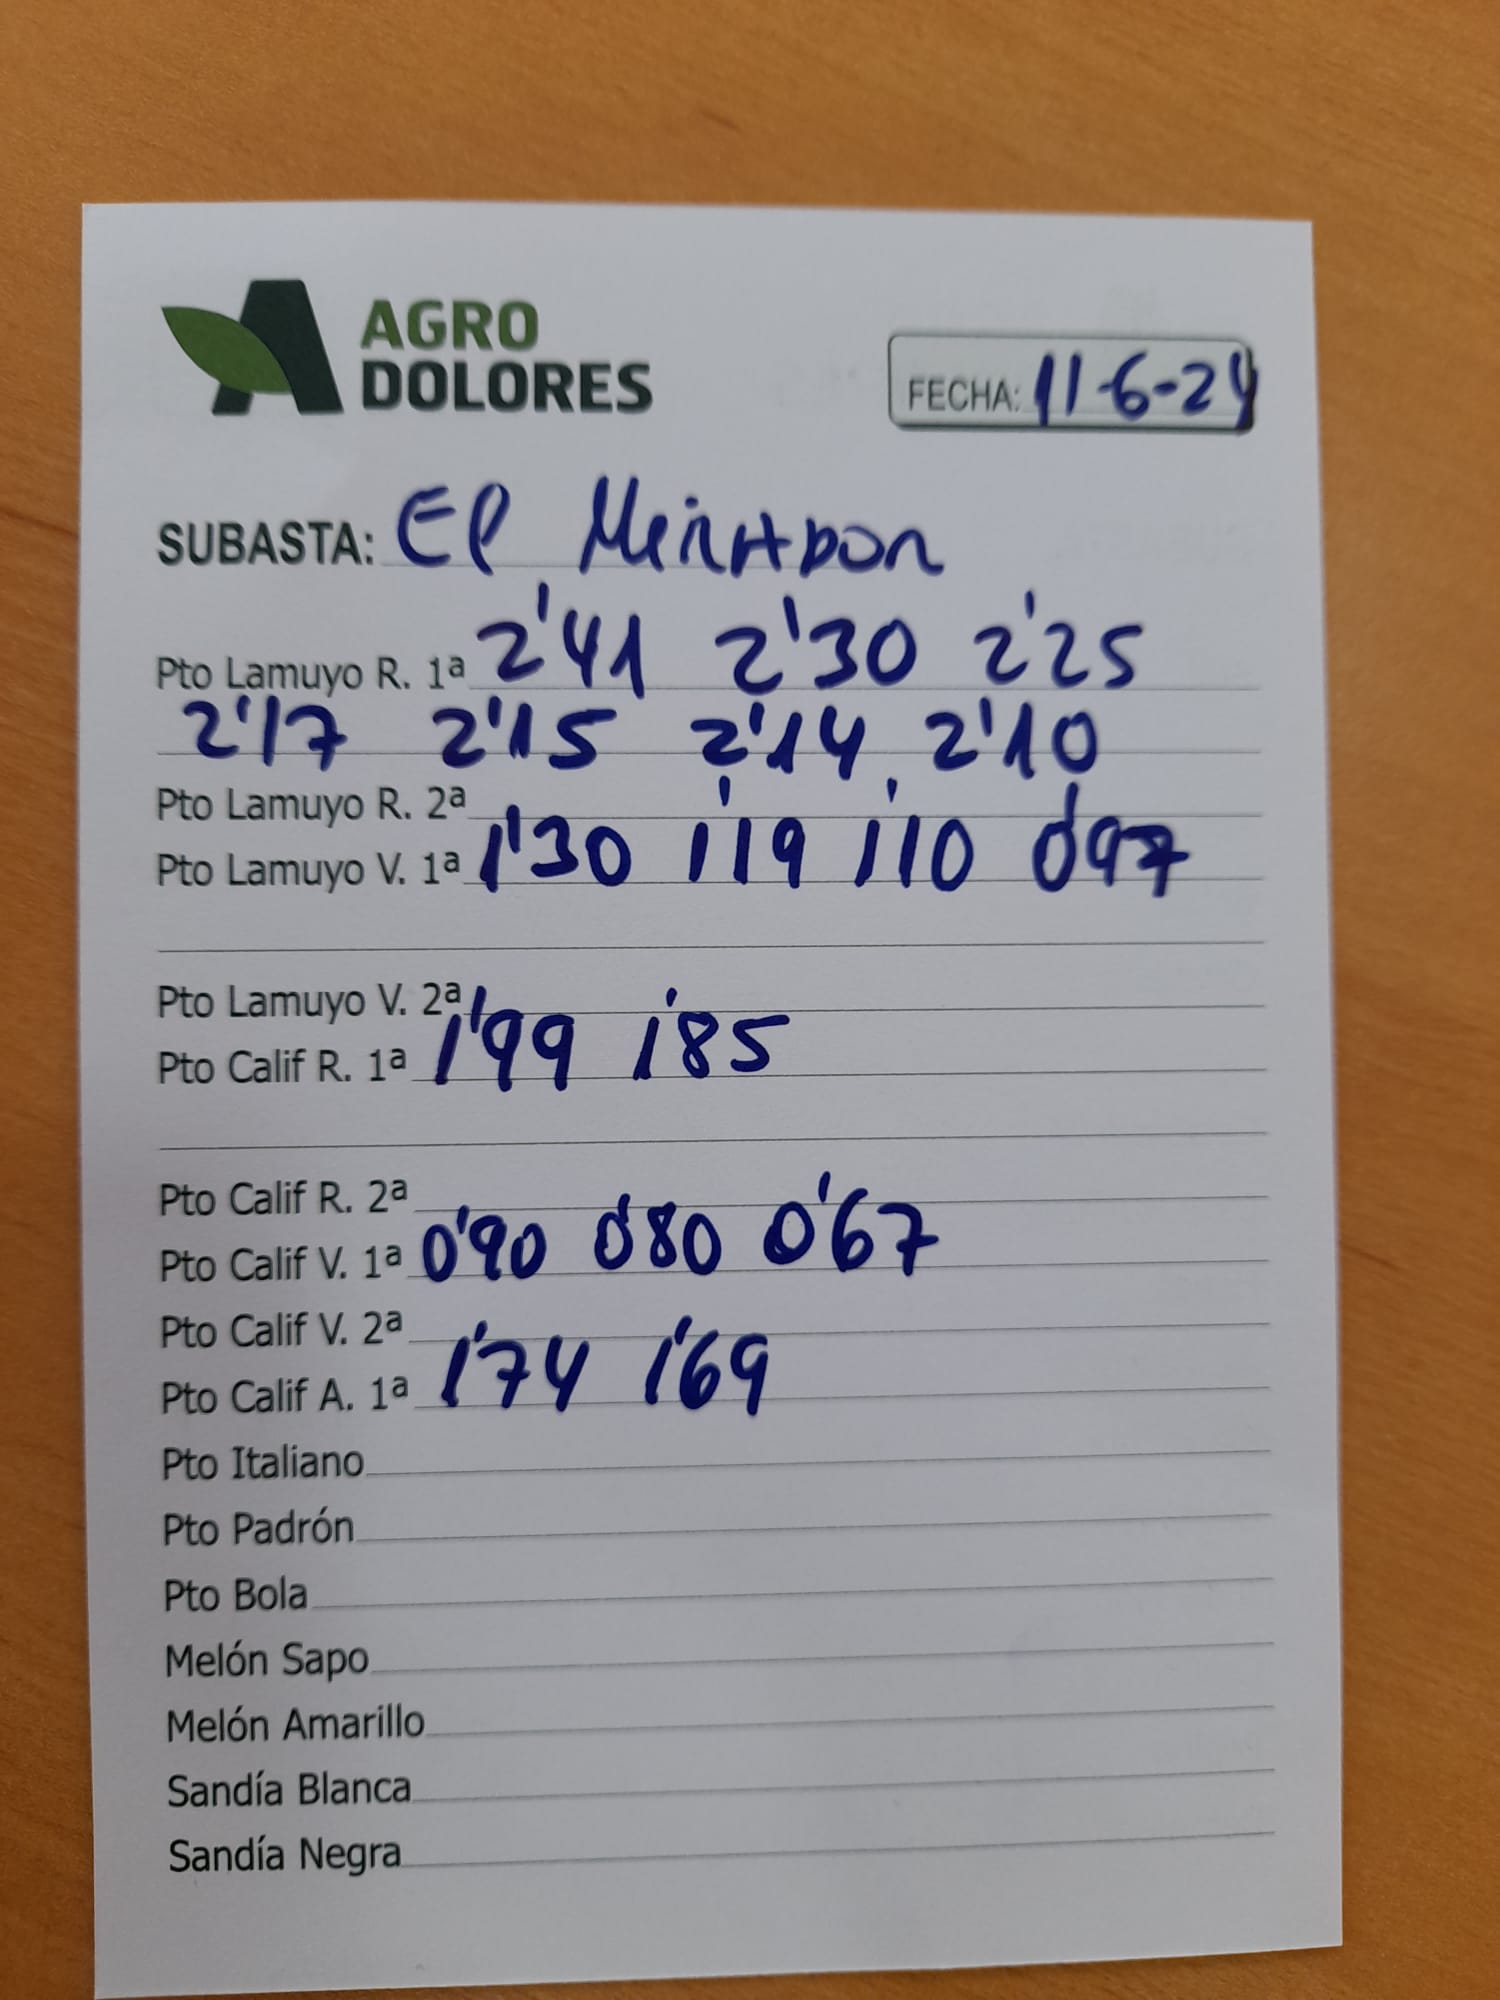 AGRO
DOLORES
FECHA: 11-6-24
SUBASTA: El Mirador
Pto Lamuyo R. 1ª 2'41 2'30 2'25
2'17 2'15 2'14 2'10
Pto Lamuyo R. 2ª
Pto Lamuyo V. 1ª 1'30 1'19 1'10 0'97
Pto Lamuyo V. 2ª
Pto Calif R. 1ª 1'99 1'85
Pto Calif R. 2ª
Pto Calif V. 1ª 0'90 0'80 0'67
Pto Calif V. 2ª
Pto Calif A. 1ª 1'74 1'69
Pto Italiano
Pto Padrón
Pto Bola
Melón Sapo
Melón Amarillo
Sandía Blanca
Sandía Negra